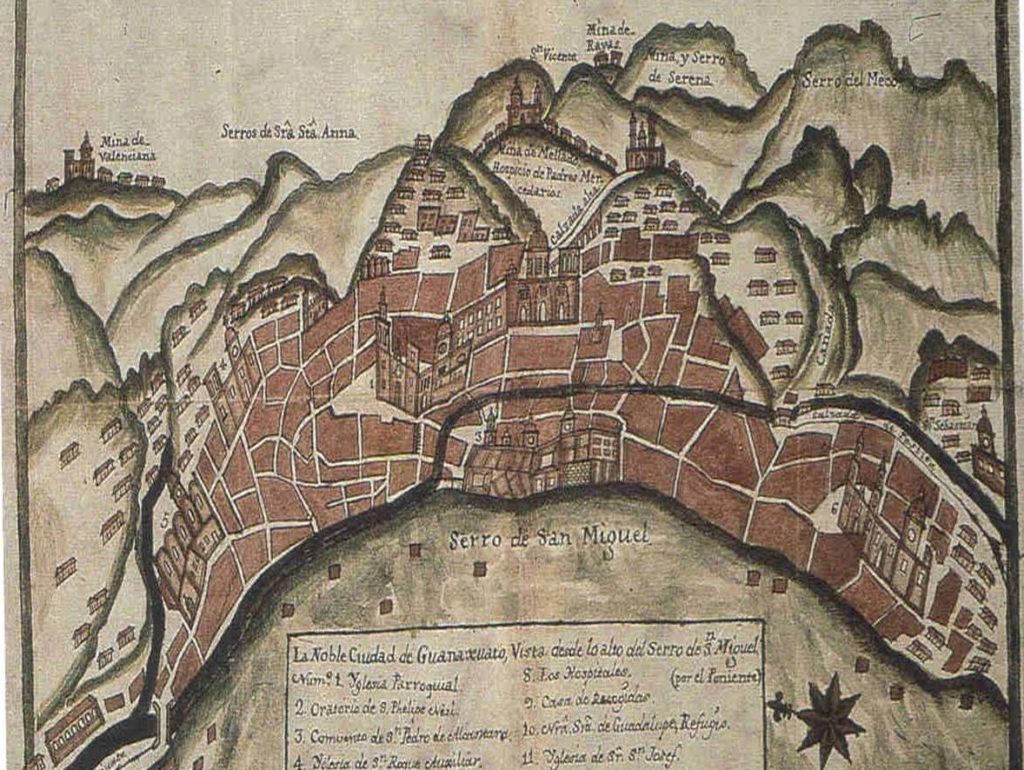 Mina de
Rayas
Sn Vicente
Mina, y Serro
de Serena
Serro del Meco
Mina de
Valenciana
Serros de Sra Sta Anna
Mina de Mellado
Hospicio de Padres Mer
cedarios
Calzada alta
Cañada
Calzada de
Sn Sebastian
1
3
5
6
Serro de San Miguel
La Noble Ciudad de Guanaxuato, Vista desde lo alto del Serro de Sn Miguel
(por el Poniente)
Numo 1. Yglesia Parroquial.
2. Oratorio de S. Phelipe Neri.
3. Comvento de Sn Pedro de Alcantara
4. Yglesia de Sn Roque Auxiliar.
8. Los Hospitales.
9. Casa de Recogidas
10. Nra Sra de Guadalupe, Refugio.
11. Yglesia de Sr Sn Josef.